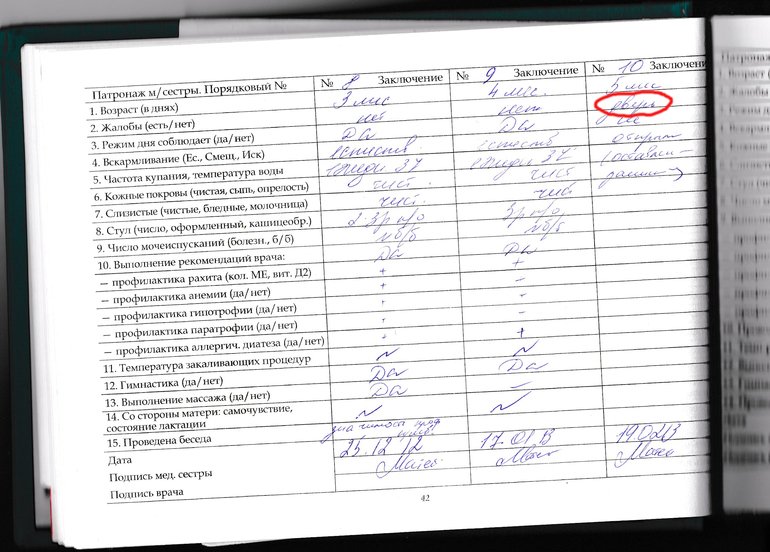 Патронаж м/сестры. Порядковый № № 8 Заключение № 9 Заключение № 10 Заключени
1. Возраст (в днях) 3 мес 4 мес. 5 мес
2. Жалобы (есть/нет) нет нет дверь
3. Режим дня соблюдает (да/нет) Да Да не
4. Вскармливание (Ес., Смещ., Иск) естеств естеств открыт
5. Частота купания, температура воды ежедн 37 ежедн 37
6. Кожные покровы (чистая, сыпь, опрелость) чист. чист
7. Слизистые (чистые, бледные, молочница) чист. чист
8. Стул (число, оформленный, кашицеобр.) 2-3р п/о 3р п/о
9. Число мочеиспусканий (болезн., б/б) б/б б/б
10. Выполнение рекомендаций врача: Да Да
— профилактика рахита (кол. МЕ, вит. Д2) + +
— профилактика анемии (да/нет) + –
— профилактика гипотрофии (да/нет) –
— профилактика паратрофии (да/нет) –
— профилактика аллергич. диатеза (да/нет) + +
11. Температура закаливающих процедур N N
12. Гимнастика (да/нет) Да Да
13. Выполнение массажа (да/нет) Да –
14. Со стороны матери: самочувствие,
состояние лактации N N
15. Проведена беседа
Дата 25.12.12 17.01.13 19.02.13
Подпись мед. сестры
Подпись врача
42